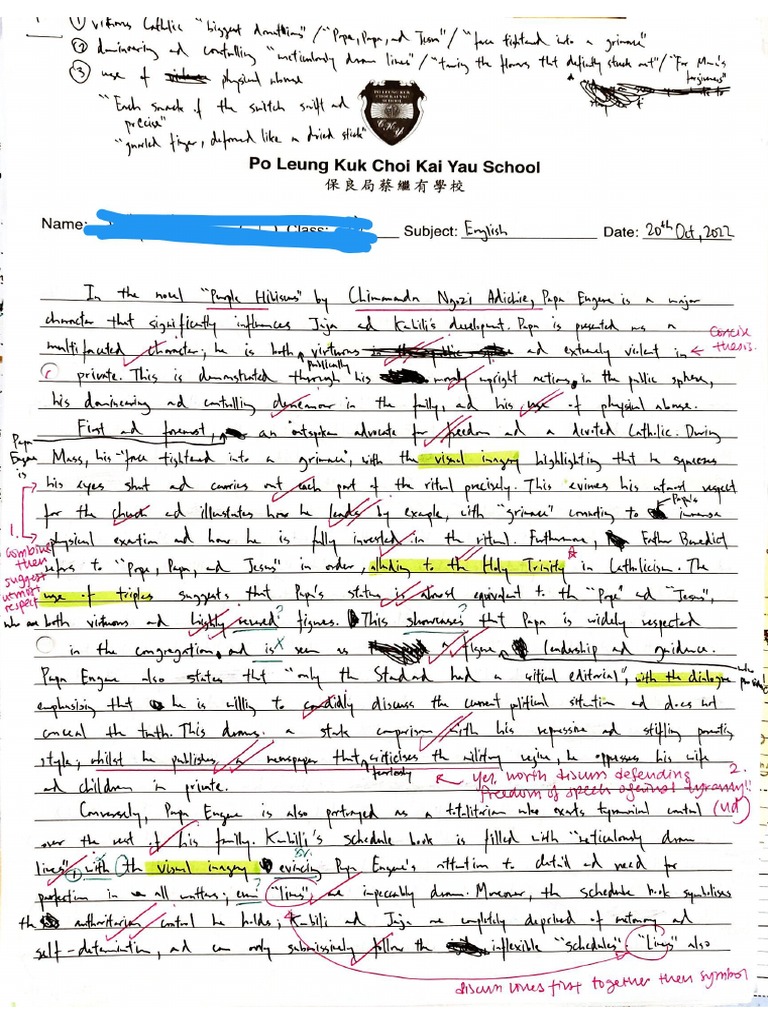 ① virtuous Catholic "biggest donations" / "Pope, Papa, and Jesus" / "face tightened into a grimace"
② domineering and controlling "meticulously drawn lines" / "taking the flowers that defiantly stuck out" / "For Mama's forgiveness"
③ use of physical abuse
"Each smack of the switch swift and precise"
"gnarled finger, deformed like a dried stick"
PO LEUNG KUK CHOI KAI YAU SCHOOL
CKY
Po Leung Kuk Choi Kai Yau School
保良局蔡繼有學校
Name: Class: Subject: English Date: 20th Oct, 2022
In the novel "Purple Hibiscus" by Chimamanda Ngozi Adichie, Papa Eugene is a major
character that significantly influences Jaja and Kambili's development. Papa is presented as a
multifaceted character; he is both publically virtuous and extremely violent in
← Concise thesis.
private. This is demonstrated through his morally upright actions in the public sphere,
his domineering and controlling demeanour in the family, and his use of physical abuse.
First and foremost, Papa Eugene is an outspoken advocate for freedom and a devoted Catholic. During
Mass, his "face tightened into a grimace", with the visual imagery highlighting that he squeezes
his eyes shut and carries out each part of the ritual precisely. This evinces his utmost respect
for the church and illustrates how he leads by example, with "grimace" connoting to Papa's immense
physical exertion and how he is fully invested in the ritual. Furthermore, Father Benedict
1. Combine then suggest utmost respect
refers to "Pope, Papa, and Jesus" in order, alluding to the Holy Trinity in Catholicism. The
use of triples suggests that Papa's status is almost equivalent to the "Pope" and "Jesus",
who are both virtuous and highly revered figures. This showcases that Papa is widely respected
in the congregation and is seen as a figure leadership and guidance.
Papa Eugene also states that "only the Standard had a critical editorial", with the dialogue
emphasising that he is willing to candidly discuss the current political situation and does not
conceal the truth. This draws a stark comparison with his repressive and stifling parenting
style; whilst he publishes a newspaper that fearlessly criticises the military regime, he oppresses his wife
and children in private.
← Yet, worth discuss defending freedom of speech against tyranny!! 2.
Conversely, Papa Eugene is also portrayed as a totalitarian who exerts tyrannical control
over the rest of his family. Kambili's schedule book is filled with "meticulously drawn
lines", with the visual imagery evincing Papa Eugene's attention to detail and need for
perfection in all matters; even "lines" are impeccably drawn. Moreover, the schedule book symbolises
the authoritarian control he holds; Kambili and Jaja are completely deprived of autonomy and
self-determination, and can only submissively follow the inflexible "schedules". "Lines" also
discuss lines first together then symbol